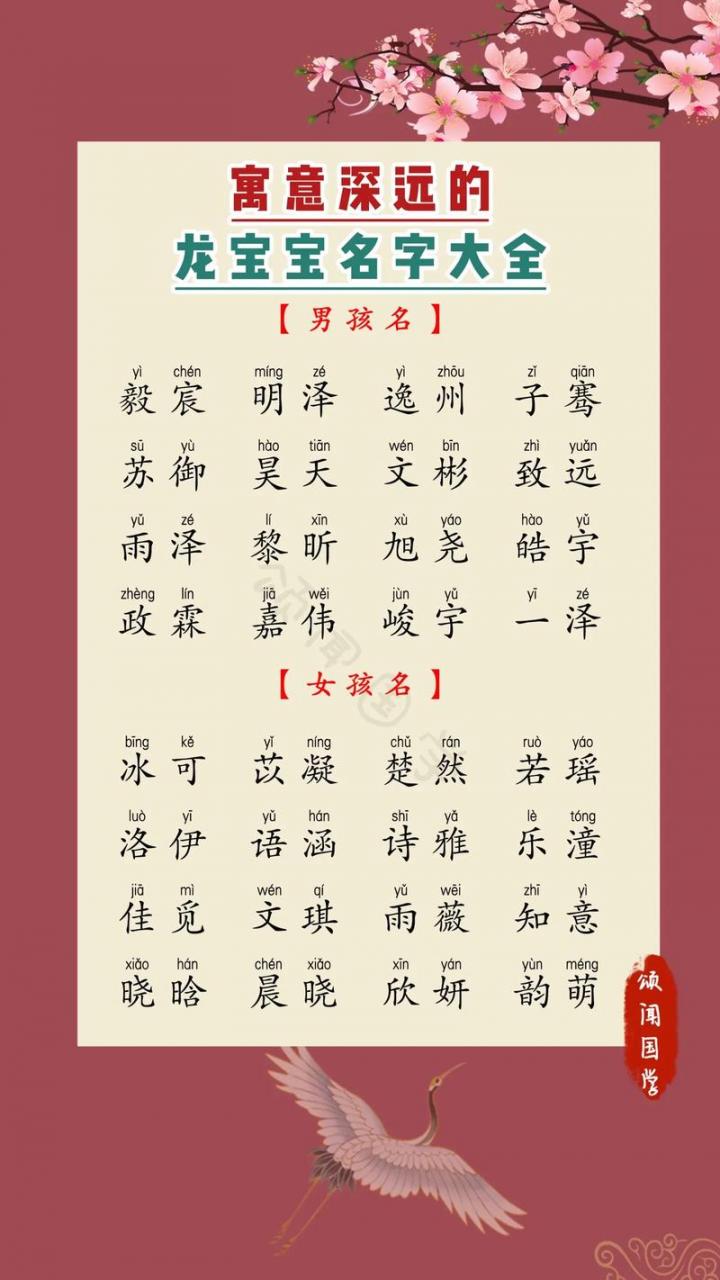 寓意深远的
龙宝宝名字大全
【男孩名】
yì chén míng zé yì zhōu zǐ qiān
毅宸 明泽 逸州 子骞
sū yù hào tiān wén bīn zhì yuǎn
苏御 昊天 文彬 致远
yǔ zé lí xīn xù yáo hào yǔ
雨泽 黎昕 旭尧 皓宇
zhèng lín jiā wěi jùn yǔ yī zé
政霖 嘉伟 峻宇 一泽
【女孩名】
bīng kě yǐ níng chǔ rán ruò yáo
冰可 苡凝 楚然 若瑶
luò yī yǔ hán shī yǎ lè tóng
洛伊 语涵 诗雅 乐潼
jiā mì wén qí yǔ wēi zhī yì
佳觅 文琪 雨薇 知意
xiǎo hán chén xiǎo xīn yán yùn méng
晓晗 晨晓 欣妍 韵萌
颂闻国学
颂闻国学